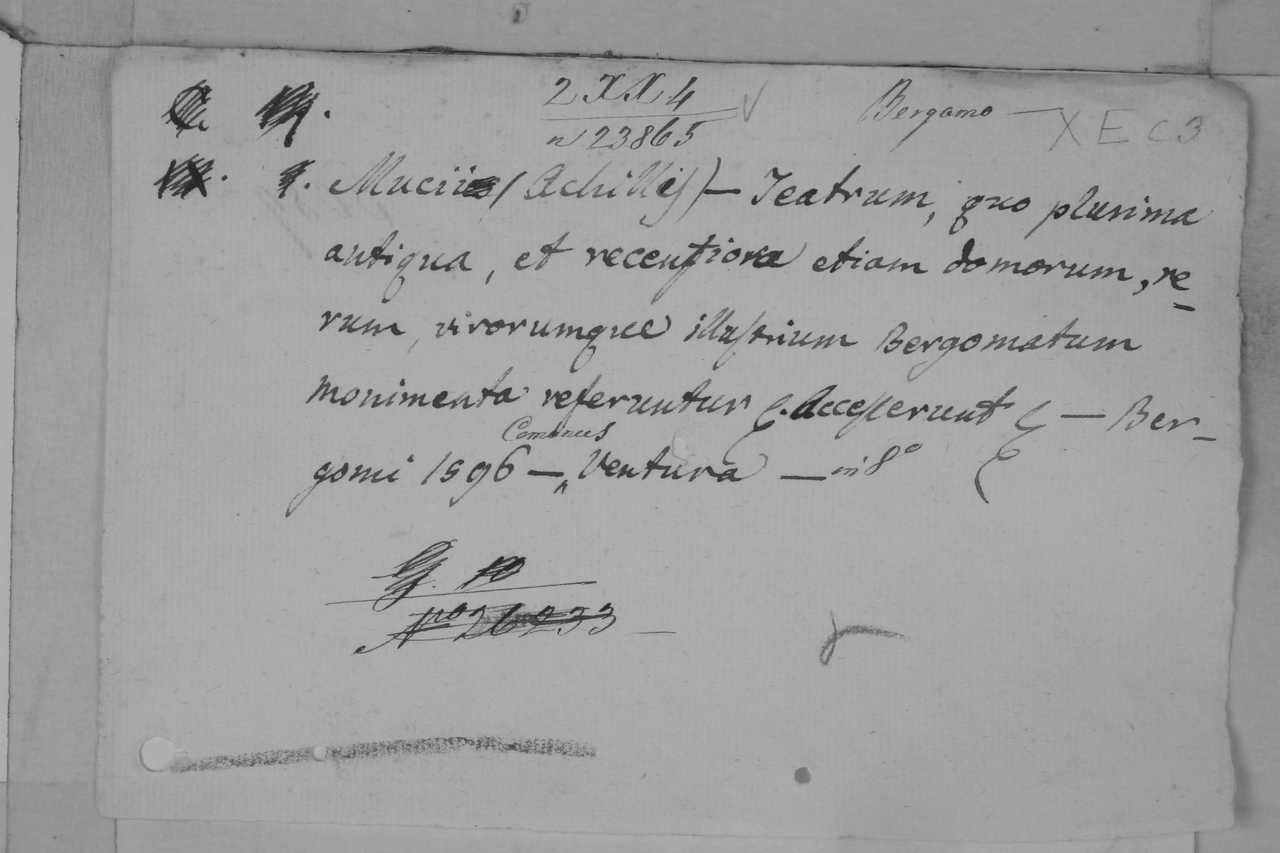 2 XX 4
n 23865
Bergamo — X E C 3
Mucii (Achillis) — Teatrum, quo plurima
antiqua, et recentiora etiam domorum, re-
rum, virorumque illustrium Bergomatum
monimenta referuntur (. Accesserunt ( — Ber-
gomi 1596 — Cominus Ventura — in 8º (
G. 10
Nro 26233 —